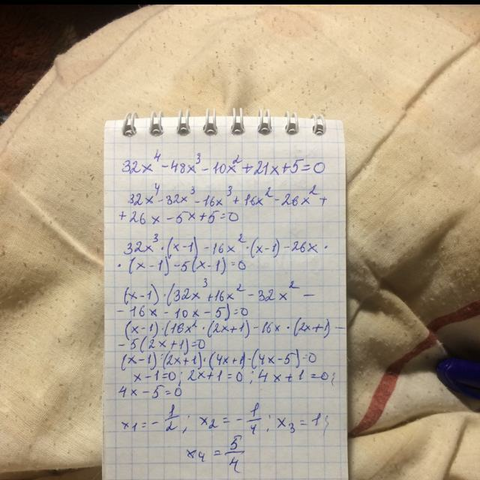 32x⁴-48x³-10x²+21x+5=0
32x⁴-32x³-16x³+16x²-26x²+
+26x-5x+5=0
32x³·(x-1)-16x²·(x-1)-26x·
·(x-1)-5(x-1)=0
(x-1)·(32x³+16x²-32x²-
-16x-10x-5)=0
(x-1)·(16x²·(2x+1)-16x·(2x+1)-
-5(2x+1)=0
(x-1)·(2x+1)·(4x+1)·(4x-5)=0
x-1=0; 2x+1=0; 4x+1=0;
4x-5=0
x₁=-1/2; x₂=-1/4; x₃=1;
x₄=5/4